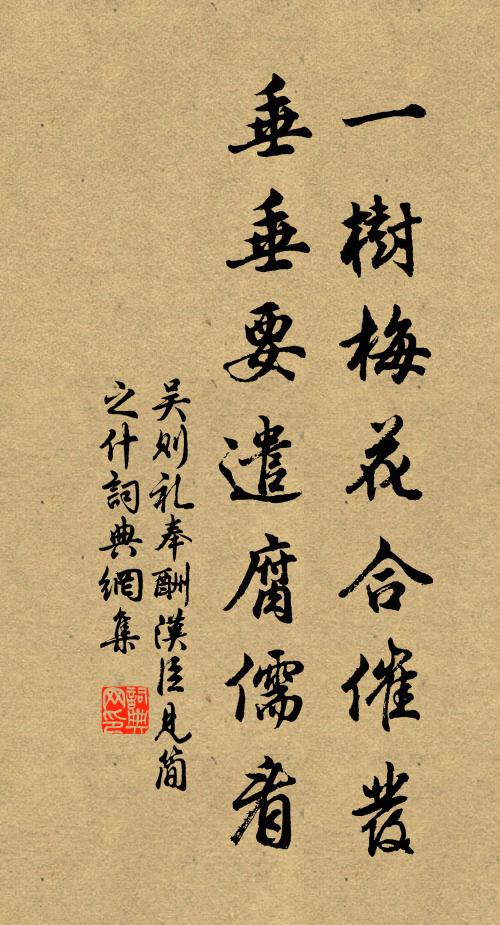 一樹梅花合催發
垂垂要遣腐儒看
吴则礼奉酬漢臣見简
之什詞典網集
詞典网印